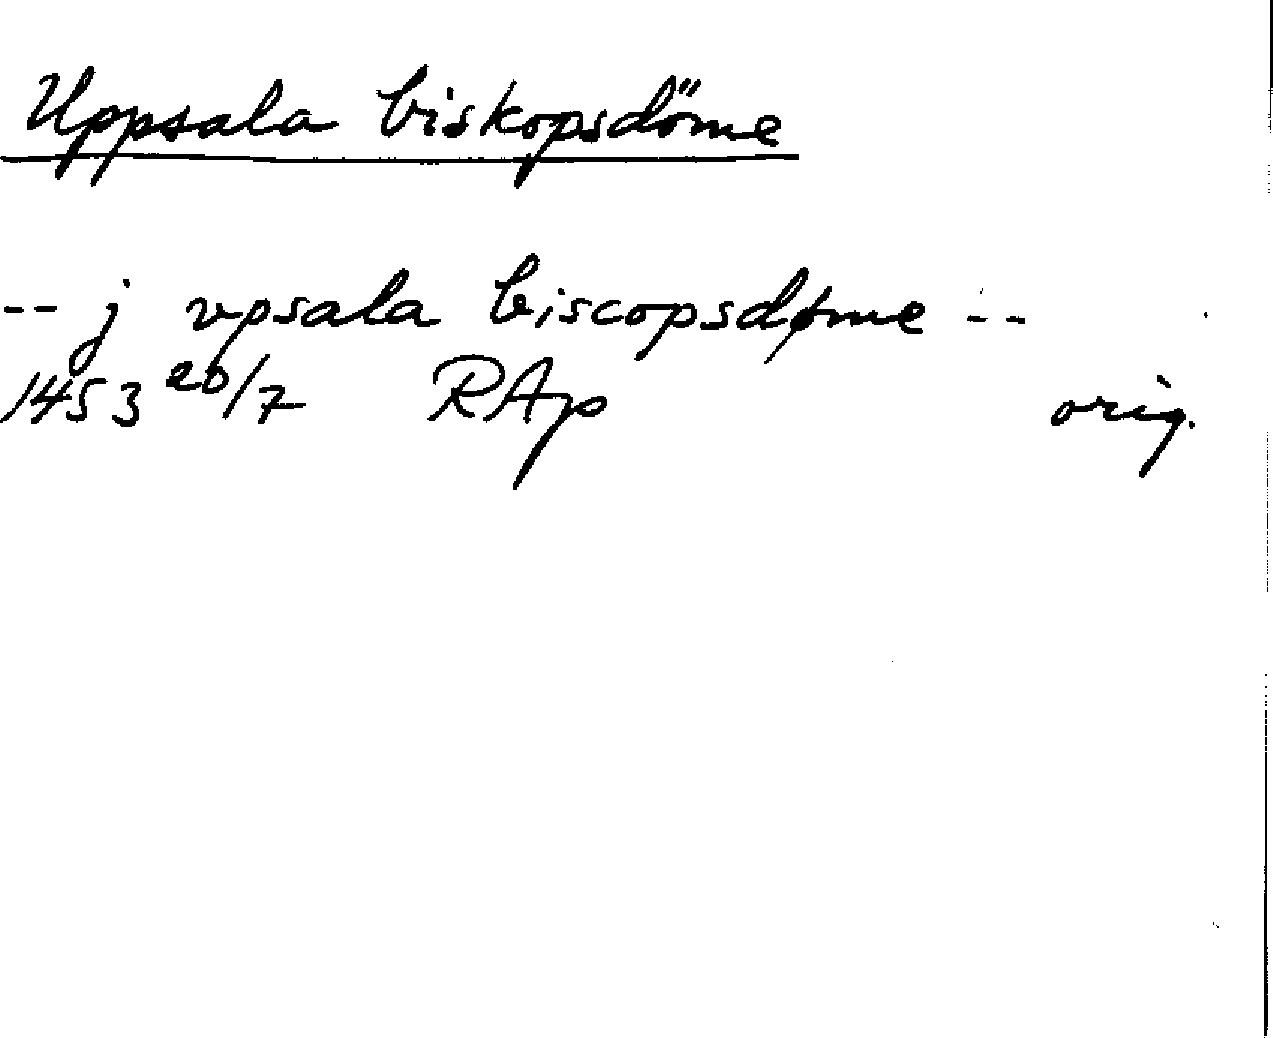 Uppsala biskopsdöme
-- j vpsala biscopsdøme --
1453 20/7 RAp orig.